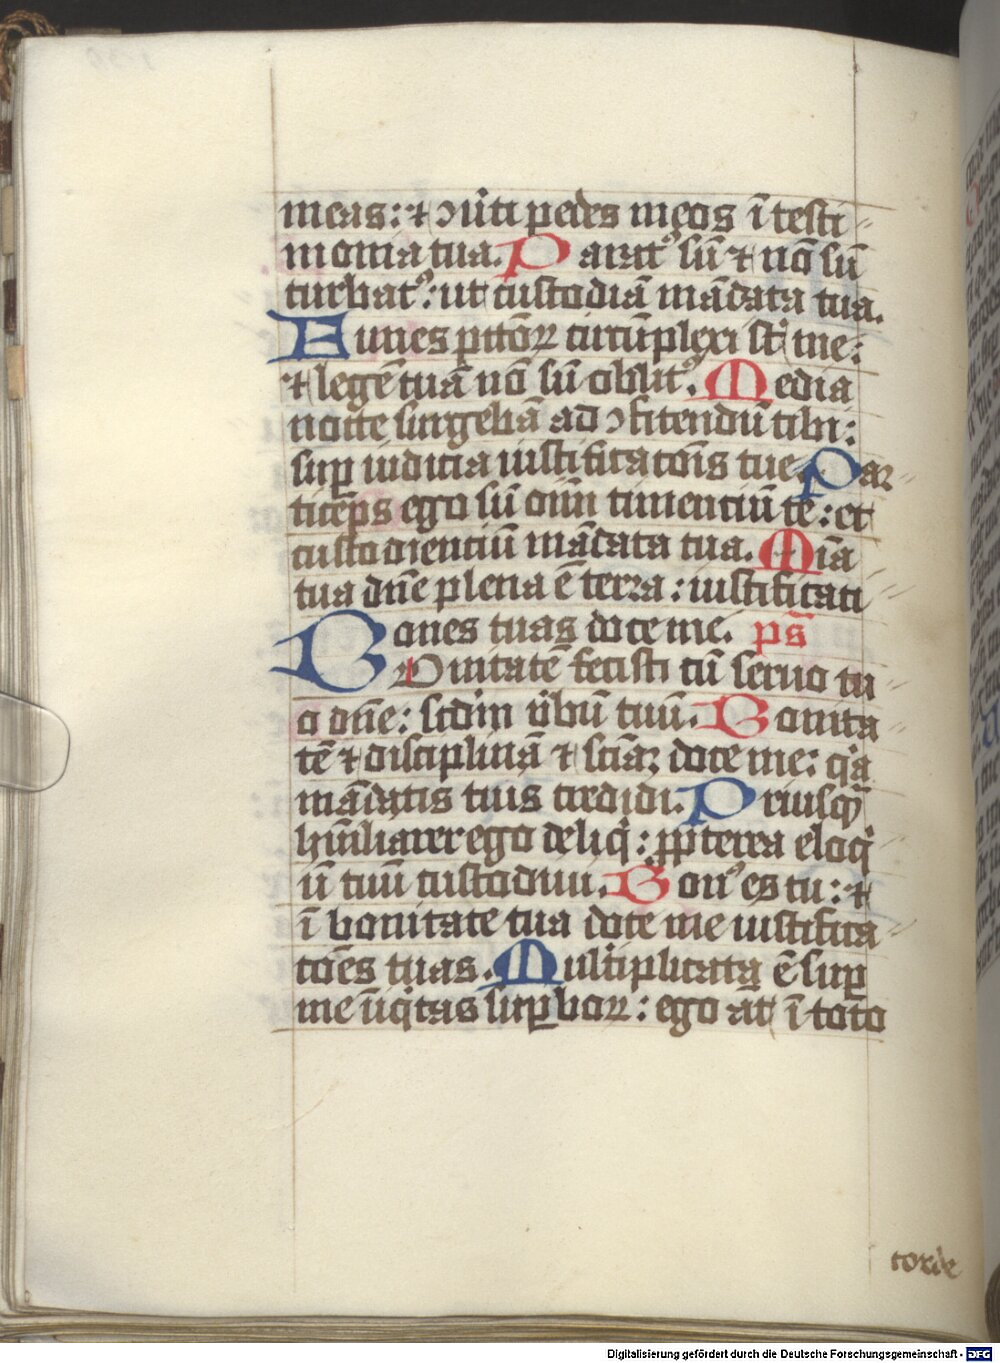 meas: ⁊ ↄũti pedes meos ĩ testi
monia tua. Paratꝰ sũ ⁊ nõ sũ
turbatꝰ: ut custodiã mãdata tua.
Funes pctõꝝ circũplexi st̃ me:
⁊ legẽ tuã nõ sũ oblitꝰ. Media
nocte surgebã ad ↄfitendũ tibi:
suꝑ iudicia iustificatõis tue. Par
ticeps ego sũ oĩm timenciũ te: et
custodienciũ mãdata tua. Mĩa
tua dñe plena ẽ terra: iustificati
ones tuas doce me. ps̃
Bonitatẽ fecisti cũ seruo tu
o dñe: scd̃m v̾bũ tuũ. Bonita
tẽ ⁊ disciplinã ⁊ sciãꝫ doce me: qͥa
mãdatis tuis credidi. Priusqͫ
hũiliarer ego deliqͥ: ꝓpterea eloqͥ
ũ tuũ custodiui. Bonꝰ es tu: ⁊
ĩ bonitate tua doce me iustifica
tões tuas. Multiplicata ẽ suꝑ
me ĩiqͥtas suꝑboꝝ: ego at̃ ĩ toto
corde
Digitalisierung gefördert durch die Deutsche Forschungsgemeinschaft - DFG